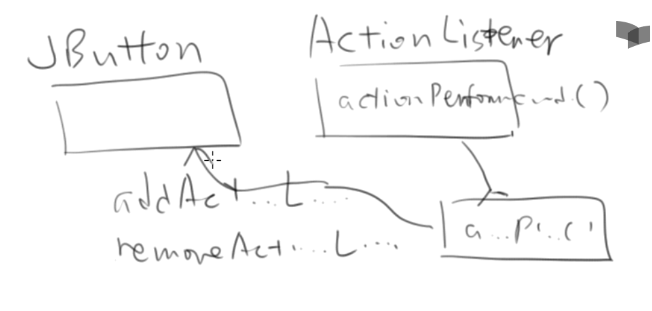 JButton
ActionListener
actionPerformed()
addAct...L....
removeAct....L....
a...P...()